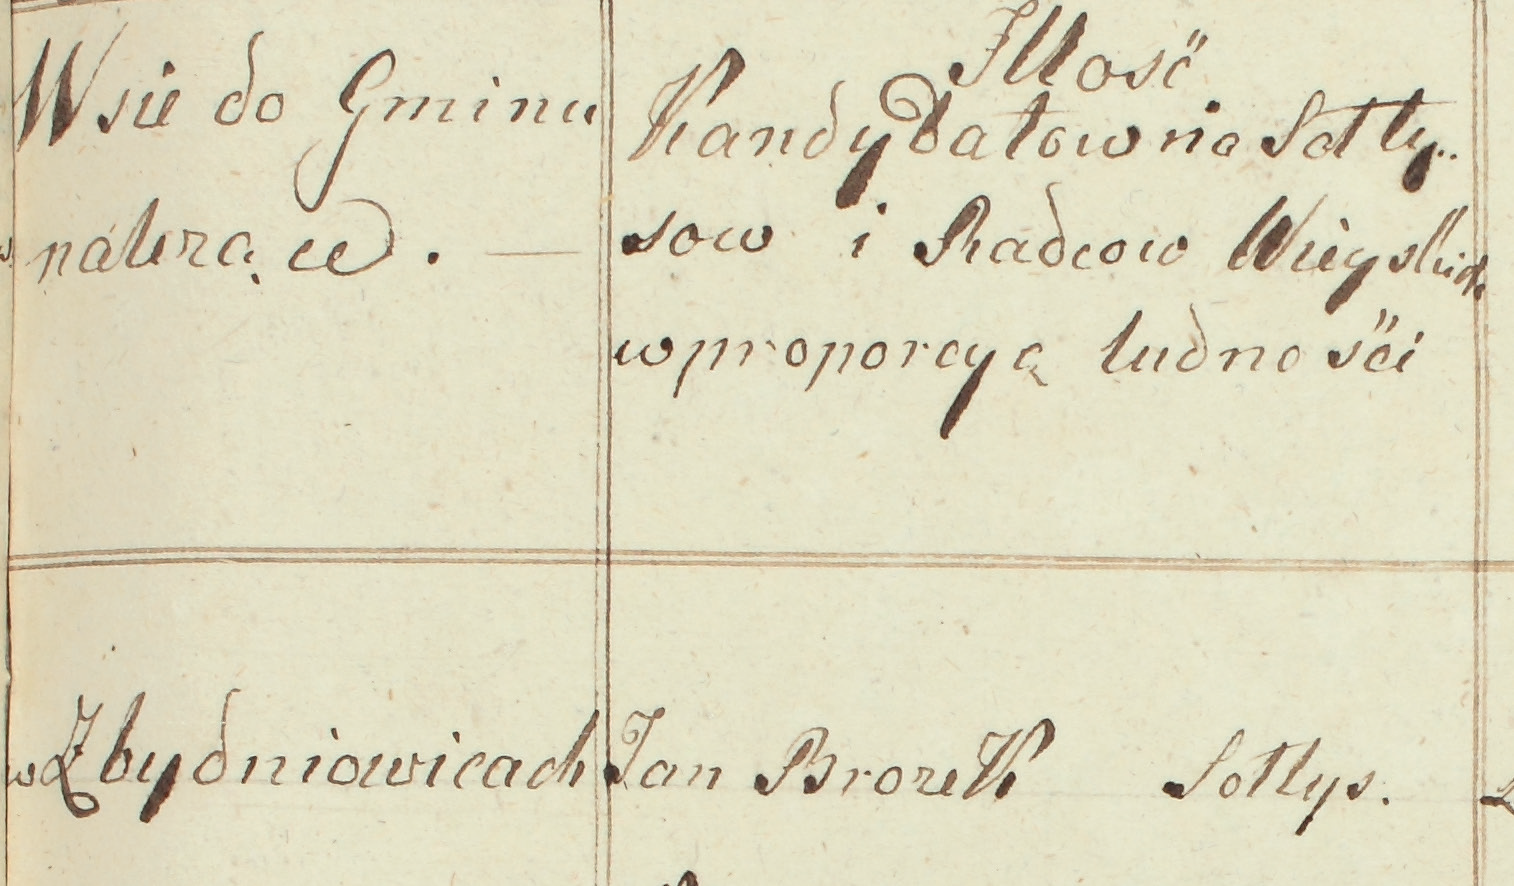 Wsie do Gminu
nálezące. —
Illość
Kandydatow na Sołty..
sow i Radcow Wieyskich
w proporcyą ludności
w Zbydniowicach
Jan Brozek Sołtys.